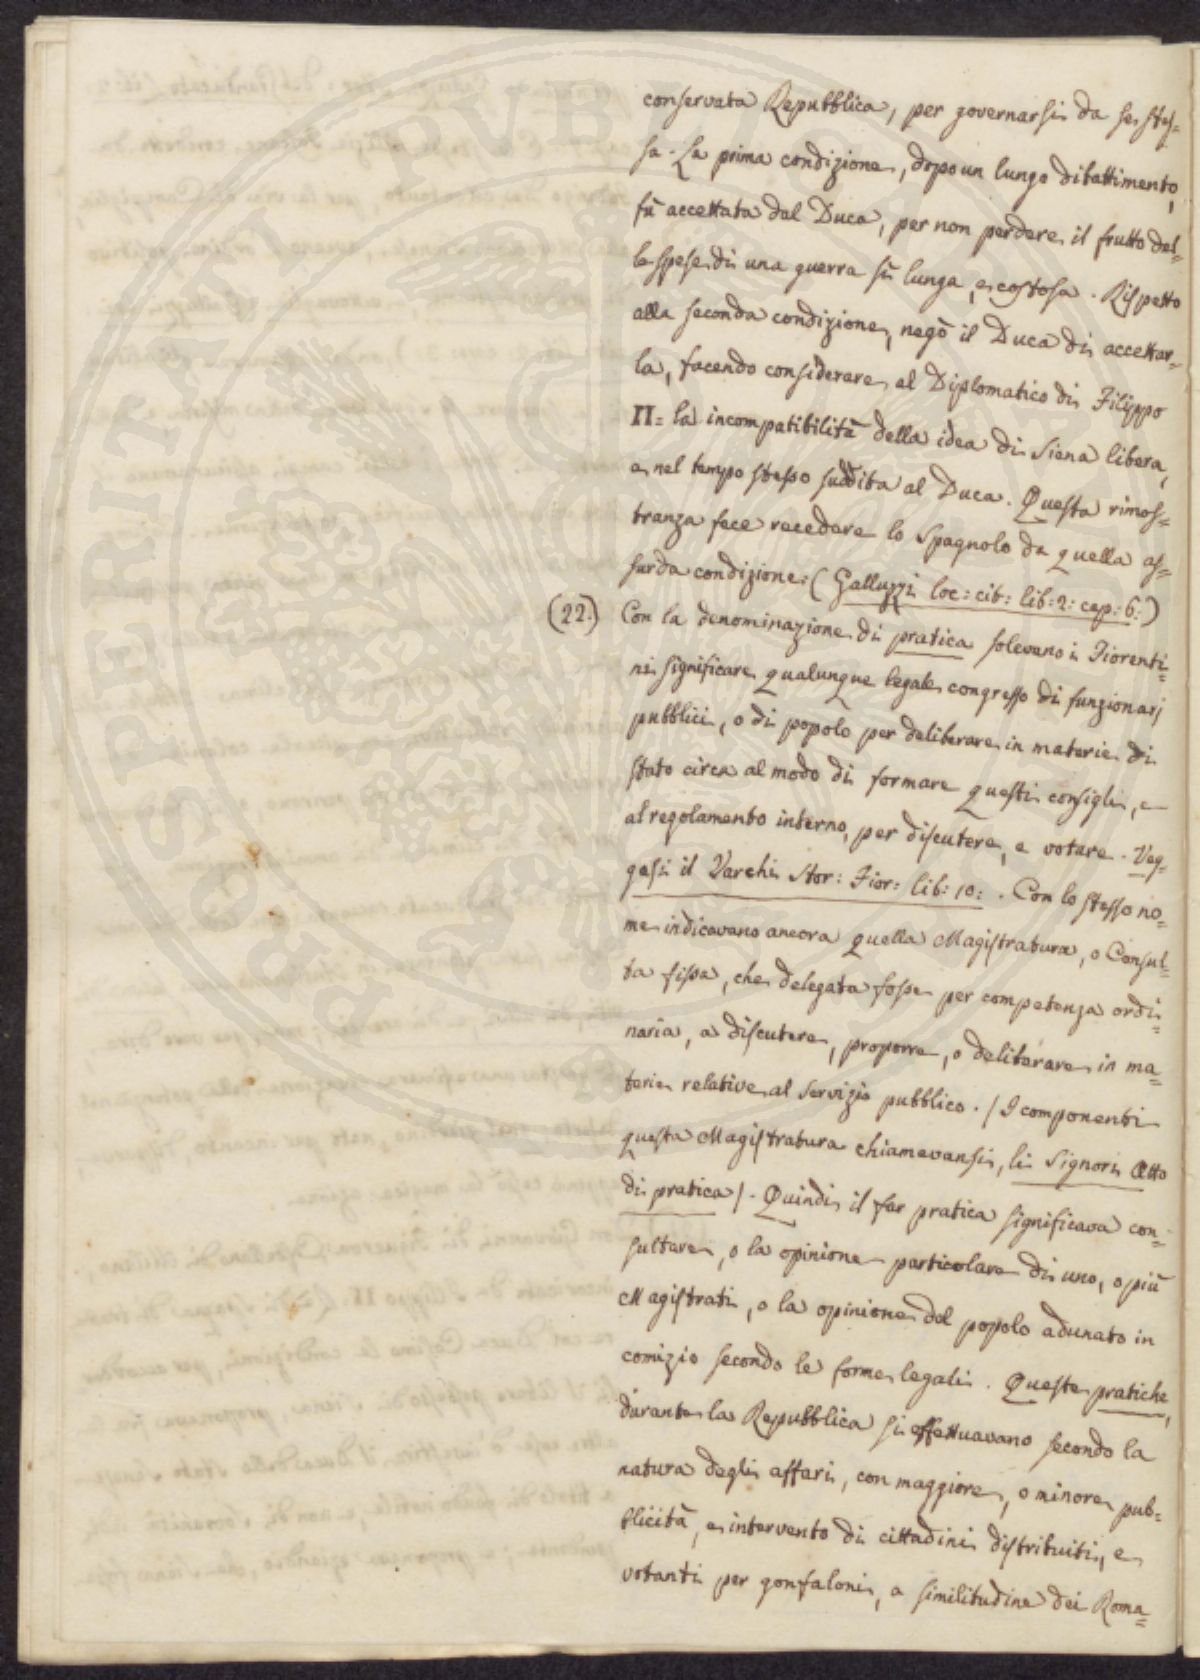 conservata Repubblica, per governarsi da se stes=
sa. La prima condizione, dopo un lungo dibattimento,
fù accettata dal Duca, per non perdere il frutto del=
le spese di una guerra sì lunga, e costosa. Rispetto
alla seconda condizione, negò il Duca di accettar=
la, facendo considerare al Diplomatico di Filippo
II= la incompatibilità della idea di Siena libera,
e nel tempo stesso suddita al Duca. Questa rimos=
tranza fece recedere lo Spagnolo da quella as=
surda condizione: (Galluzzi loc: cit: lib: 2: cap: 6:)
(22.) Con la denominazione di pratica solevano i Fiorenti=
ni significare qualunque legale congresso di funzionarj
pubblici, o di popolo per deliberare in materie di
stato circa al modo di formare questi consigli, e
al regolamento interno, per discutere, e votare. Veg=
gasi il Varchi Stor: Fior: lib: 10: . Con lo stesso no=
me indicavano ancora quella Magistratura, o Consul=
ta fissa, che delegata fosse per competenza ordi=
naria, a discutere, proporre, o deliberare in ma=
terie relative al servizio pubblico. / I componenti
questa Magistratura chiamavansi, li Signori Otto
di pratica /. Quindi il far pratica significava con=
sultare, o la opinione particolare di uno, o più
Magistrati, o la opinione del popolo adunato in
comizio secondo le forme legali. Queste pratiche,
durante la Repubblica si effettuavano secondo la
natura degli affari, con maggiore, o minore pub=
blicità, e intervento di cittadini distribuiti, e
votanti per gonfaloni, a similitudine dei Roma=
PROSPERITATI PUBLICAE